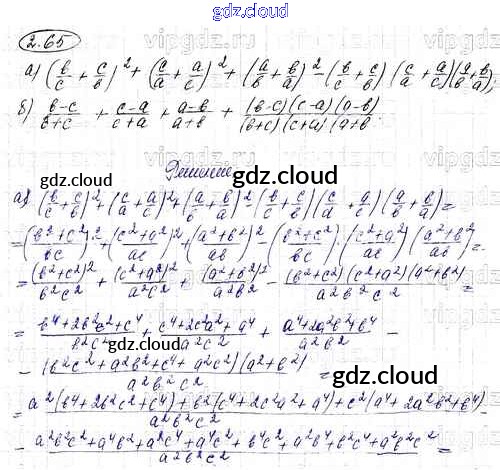 gdz.cloud
2.65
а) (b/c + c/b)² + (c/a + a/c)² + (a/b + b/a)² - (b/c + c/b) (c/a + a/c)(a/b + b/a);
б) (b-c)/(b+c) + (c-a)/(c+a) + (a-b)/(a+b) + ((b-c)(c-a)(a-b))/((b+c)(c+a)(a+b)).
Решение
gdz.cloud gdz.cloud
а) (b/c + c/b)² + (c/a + a/c)² + (a/b + b/a)² - (b/c + c/b)(c/a + a/c)(a/b + b/a) =
= ((b²+c²)/bc)² + ((c²+a²)/ac)² + ((a²+b²)/ab)² - ((b²+c²)/bc)·((c²+a²)/ac)((a²+b²)/ab) =
= (b²+c²)²/b²c² + (c²+a²)²/a²c² + (a²+b²)²/a²b² - ((b²+c²)(c²+a²)(a²+b²))/a²b²c² =
= (b⁴+2b²c²+c⁴)/b²c² + (c⁴+2c²a²+a⁴)/a²c² + (a⁴+2a²b²+b⁴)/a²b² -
gdz.cloud
- ((b²c²+a²b²+c⁴+a²c²)(a²+b²))/a²b²c² =
gdz.cloud
= (a²(b⁴+2b²c²+c⁴)+b²(c⁴+2c²a²+a⁴)+c²(a⁴+2a²b²+b⁴))/a²b²c² -
- (a²b²c²+a⁴b²+a²c⁴+a⁴c²+b⁴c²+a²b⁴+b²c⁴+a²b²c²)/a²b²c² =
gdz.cloud